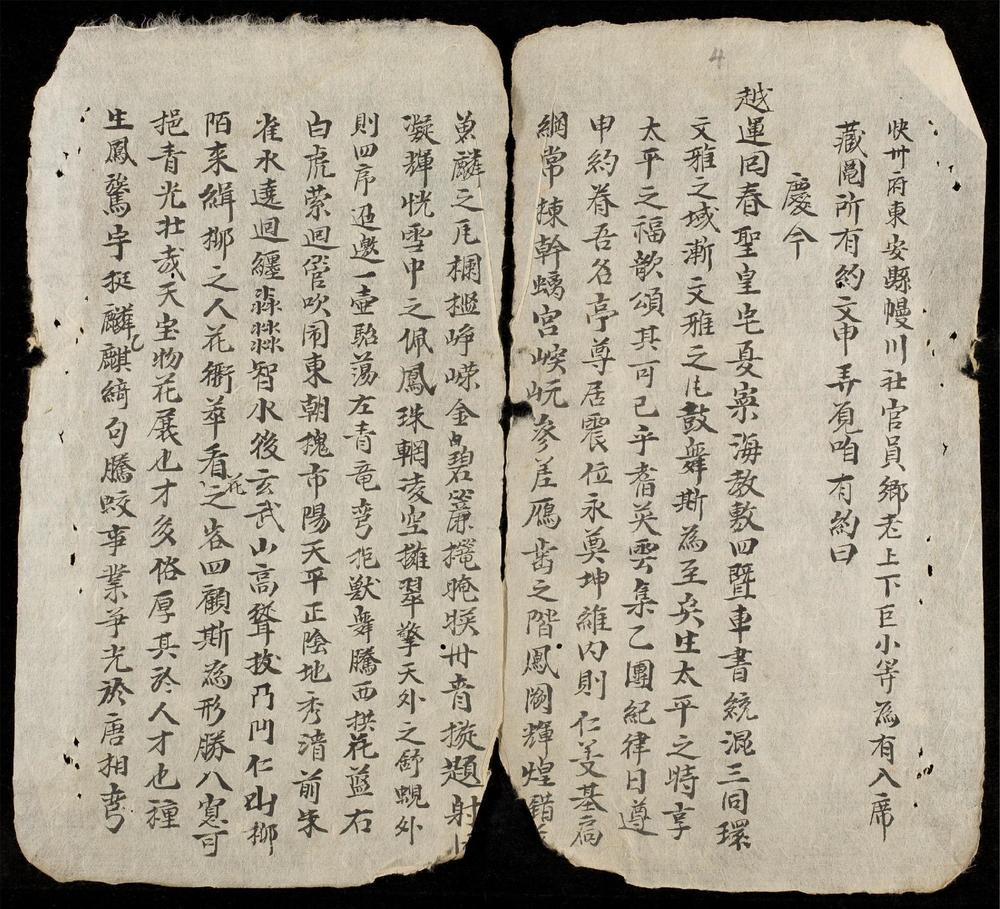 4
快卅府東安縣幔川社官員鄉老上下巨小等為有入席
藏鬮所有約文申弄頑咱有約曰
慶今
越運囘春聖皇宅憂寧海敎敷四暨車書統混三同環
文雅之域漸文雅之凡鼓舞斯為至矣生太平之時享
太平之福歌頌其可已乎耆英雲集乙團紀律日遵
申約眷吾名亭尊居震位永奠坤維内則仁美基扃
綱常棟幹螭宮峻岏參差鴈齒之階鳳閣輝煌錯
魚麟之瓦欄檻崢嶸金白碧簾櫳晻暎丹青㨕題射
凝輝恍雲中之佩鳳珠輞凌空擁翠擎天外之舒蜺外
則四序迅邀一壺駘蕩左青竜弯抱獸舞騰西拱花蓝右
白虎縈迴管吹閙東朝槐市陽天平正陰地秀清前朱
雀水遶迴纏淼淼智水後玄武山高聳拔乃門仁山柳
陌来緝柳之人花衢萃看花之客四顧斯為形勝八窓可
挹青光壮哉天宝物花展也才多俗厚其於人才也種
生鳳鶩宇挺麟麒綺句騰蛟事業爭光於唐相弯